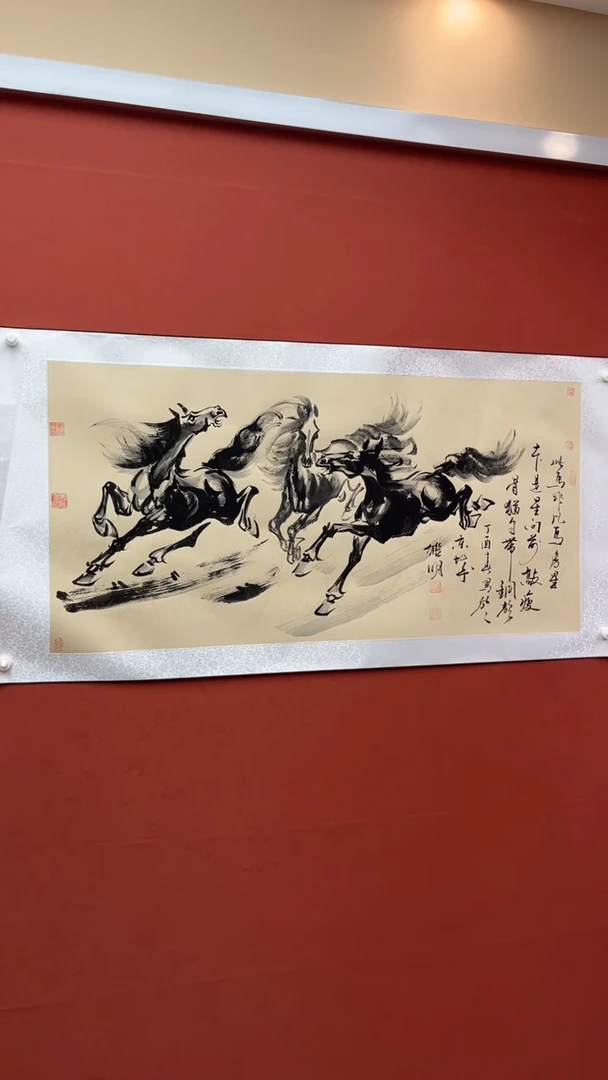 此馬非凡馬房星
本是星向前敲瘦
骨猶自帶銅聲
丁酉春寫於
京
雄明